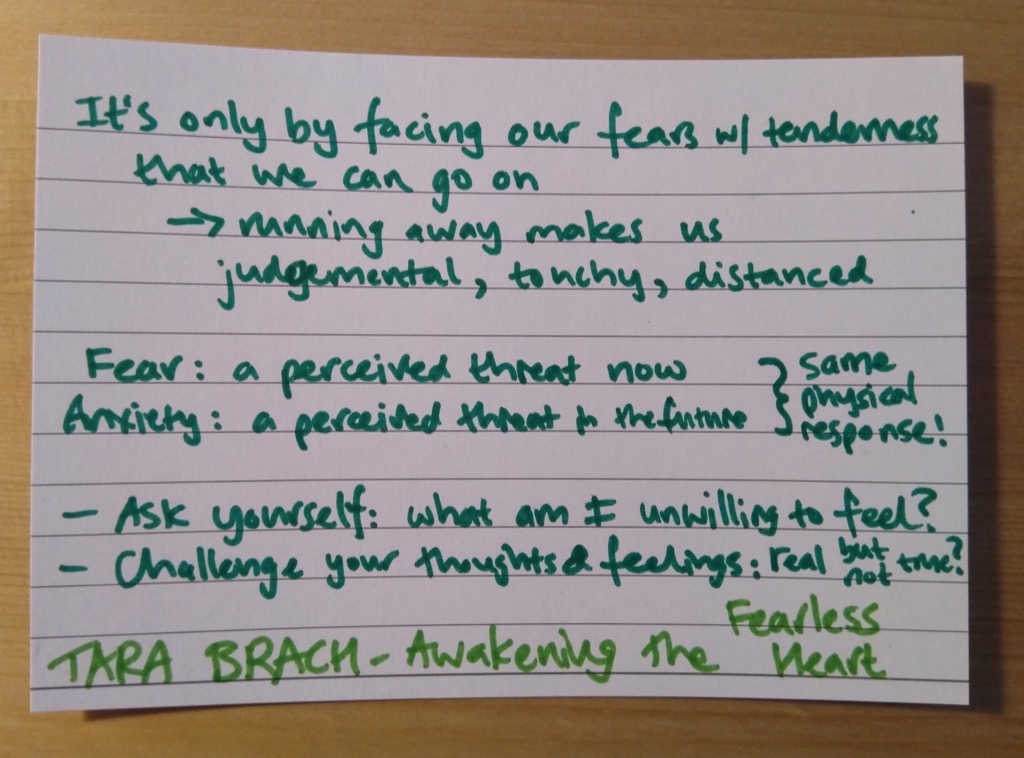 It's only by facing our fears w/ tenderness
that we can go on
→ running away makes us
judgemental, touchy, distanced
Fear: a perceived threat now
Anxiety: a perceived threat in the future
} same physical response!
- Ask yourself: what am I unwilling to feel?
- Challenge your thoughts & feelings: real but not true?
TARA BRACH - Awakening the Fearless Heart